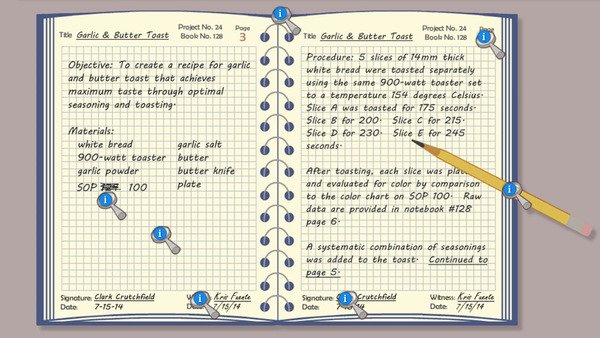 Title Garlic & Butter Toast
Project No. 24
Book No. 128
Page
3
Objective: To create a recipe for garlic
and butter toast that achieves
maximum taste through optimal
seasoning and toasting.
Materials:
white bread
900-watt toaster
garlic powder
SOP 100
garlic salt
butter
butter knife
plate
Signature: Clark Crutchfield
Date: 7-15-14
Kris Fuele
Date: 7/15/14
Title Garlic & Butter Toast
Project No. 24
Book No. 128
Procedure: 5 slices of 14mm thick
white bread were toasted separately
using the same 900-watt toaster set
to a temperature 154 degrees Celsius.
Slice A was toasted for 175 seconds.
Slice B for 200. Slice C for 215.
Slice D for 230. Slice E for 245
seconds.
After toasting, each slice was
and evaluated for color by comparison
to the color chart on SOP 100. Raw
data are provided in notebook #128
page 6.
A systematic combination of seasonings
was added to the toast. Continued to
page 5.
Crutchfield
Date: 7-15-14
Witness: Kris Fuele
Date: 7/15/14